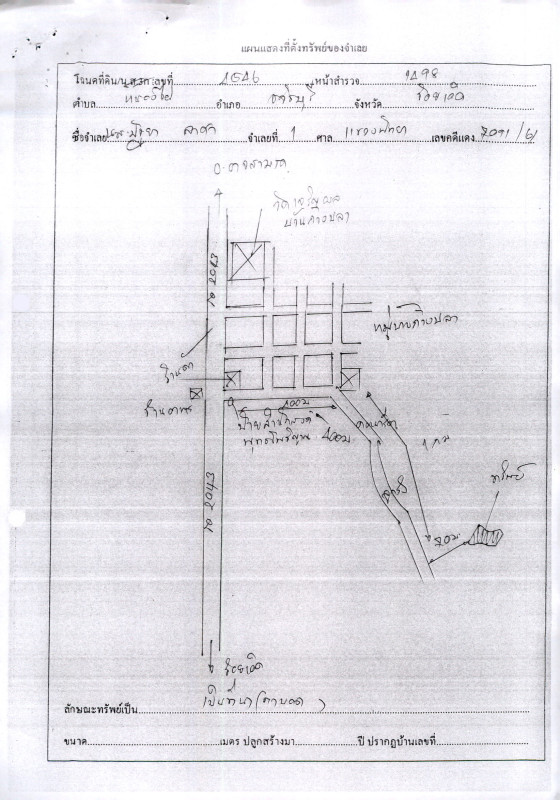 แผนแสดงที่ตั้งทรัพย์ของจำเลย
โฉนดที่ดิน/น.ส.3ก.เลขที่ 1546 หน้าสำรวจ 1498
ตำบล หนองไผ่ อำเภอ ธวัชบุรี จังหวัด ร้อยเอ็ด
ชื่อจำเลย จำเลยที่ 1 ศาล แขวงพัทยา เลขคดีแดง /61
อ.อาจสามารถ
บ้านค้างปลา
ถ 2043
หมู่บ้านค้างปลา
ร้านค้า
ร้านอาหาร
400ม
400ม
คอนกรีต
ลูกรัง
1 กม
ทรัพย์
20ม
ถ 2043
ร้อยเอ็ด
ลักษณะทรัพย์เป็น เป็นที่นา
ขนาด เมตร ปลูกสร้างมา ปี ปรากฏบ้านเลขที่